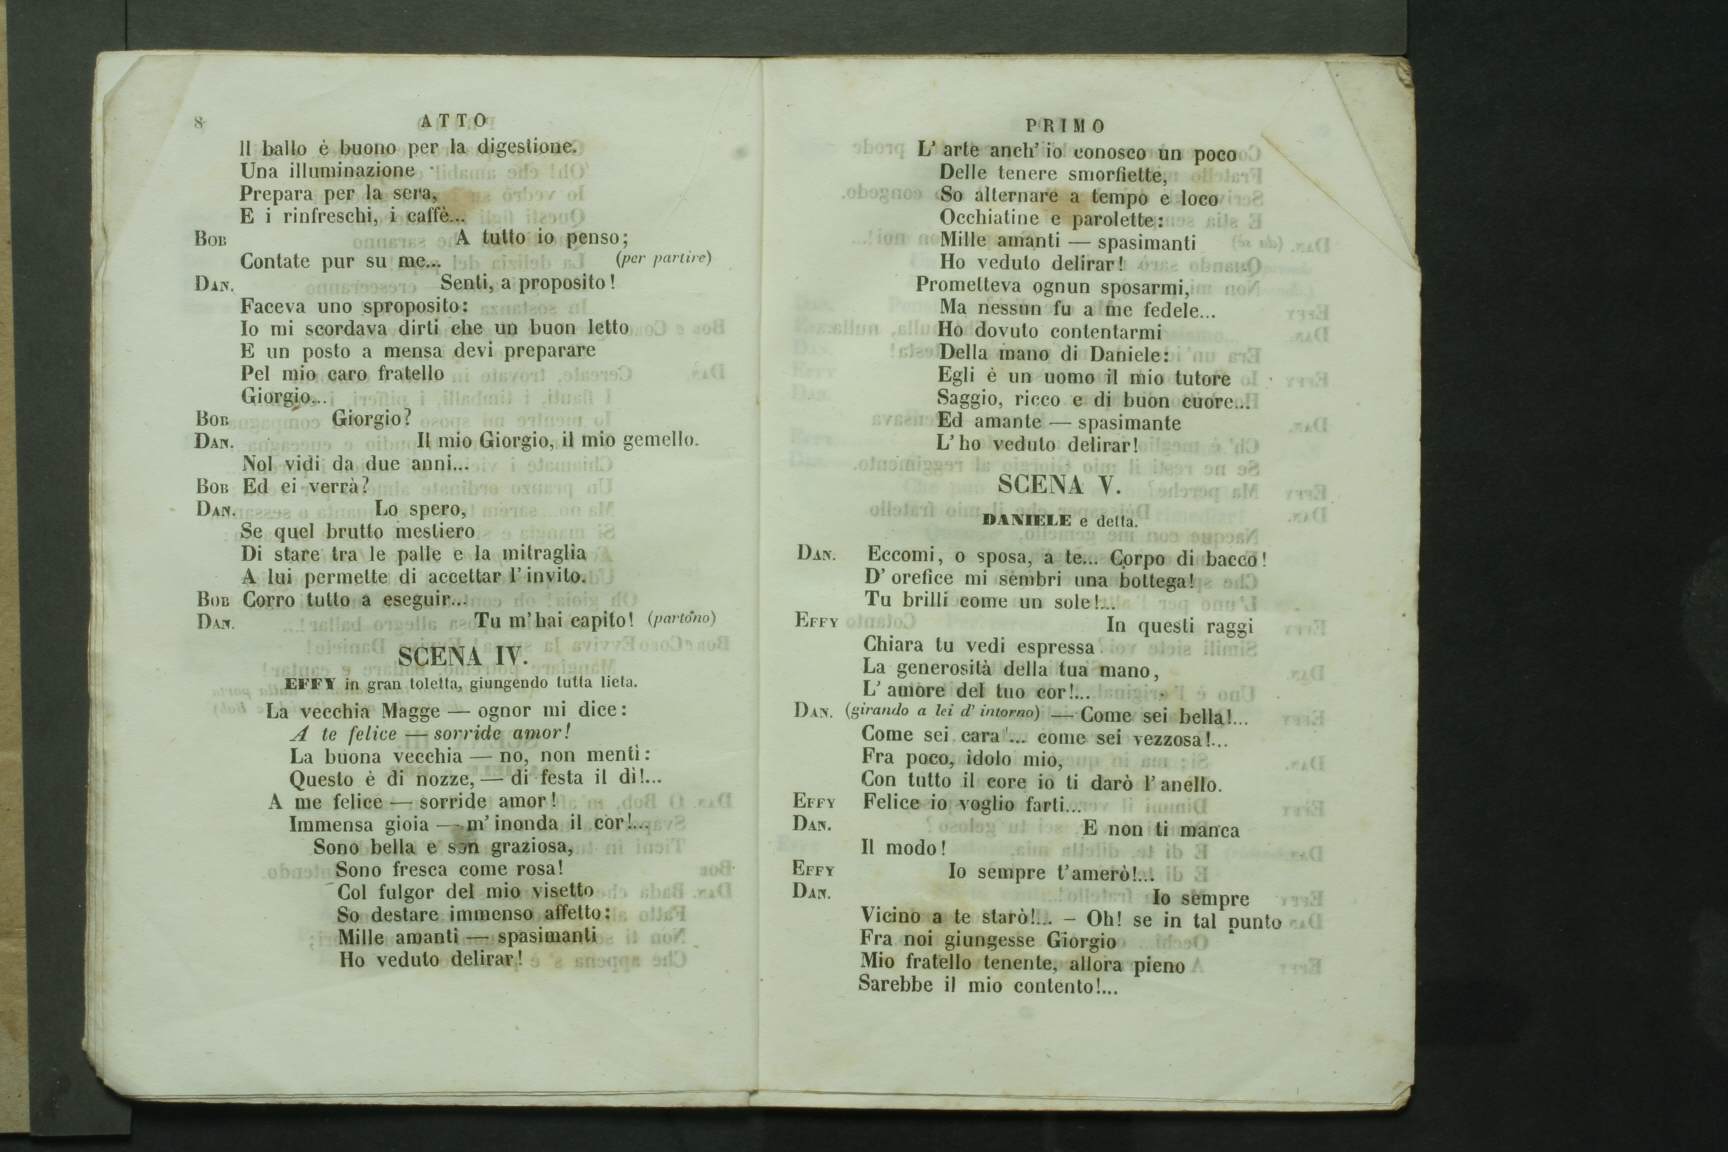 8
ATTO
Il ballo è buono per la digestione.
Una illuminazione
Prepara per la sera,
E i rinfreschi, i caffè...
BOB A tutto io penso;
Contate pur su me... (per partire)
DAN. Senti, a proposito!
Faceva uno sproposito:
Io mi scordava dirti che un buon letto
E un posto a mensa devi preparare
Pel mio caro fratello
Giorgio...
BOB Giorgio?
DAN. Il mio Giorgio, il mio gemello.
Nol vidi da due anni...
BOB Ed ei verrà?
DAN. Lo spero,
Se quel brutto mestiero
Di stare tra le palle e la mitraglia
A lui permette di accettar l'invito.
BOB Corro tutto a eseguir...
DAN. Tu m'hai capito! (partono)
SCENA IV.
EFFY in gran toletta, giungendo tutta lieta.
La vecchia Magge — ognor mi dice:
A te felice — sorride amor!
La buona vecchia — no, non mentì:
Questo è di nozze, — di festa il dì!...
A me felice — sorride amor!
Immensa gioia — m'inonda il cor!...
Sono bella e son graziosa,
Sono fresca come rosa!
Col fulgor del mio visetto
So destare immenso affetto:
Mille amanti — spasimanti
Ho veduto delirar!
PRIMO
L'arte anch'io conosco un poco
Delle tenere smorfiette,
So alternare a tempo e loco
Occhiatine e parolette:
Mille amanti — spasimanti
Ho veduto delirar!
Prometteva ognun sposarmi,
Ma nessun fu a me fedele...
Ho dovuto contentarmi
Della mano di Daniele:
Egli è un uomo il mio tutore
Saggio, ricco e di buon cuore...
Ed amante — spasimante
L'ho veduto delirar!
SCENA V.
DANIELE e detta.
DAN. Eccomi, o sposa, a te... Corpo di bacco!
D'orefice mi sembri una bottega!
Tu brilli come un sole!...
EFFY In questi raggi
Chiara tu vedi espressa
La generosità della tua mano,
L'amore del tuo cor!...
DAN. (girando a lei d'intorno) — Come sei bella!...
Come sei cara!... come sei vezzosa!...
Fra poco, idolo mio,
Con tutto il core io ti darò l'anello.
EFFY Felice io voglio farti...
DAN. E non ti manca
Il modo!
EFFY Io sempre t'amerò!...
DAN. Io sempre
Vicino a te starò!... – Oh! se in tal punto
Fra noi giungesse Giorgio
Mio fratello tenente, allora pieno
Sarebbe il mio contento!...